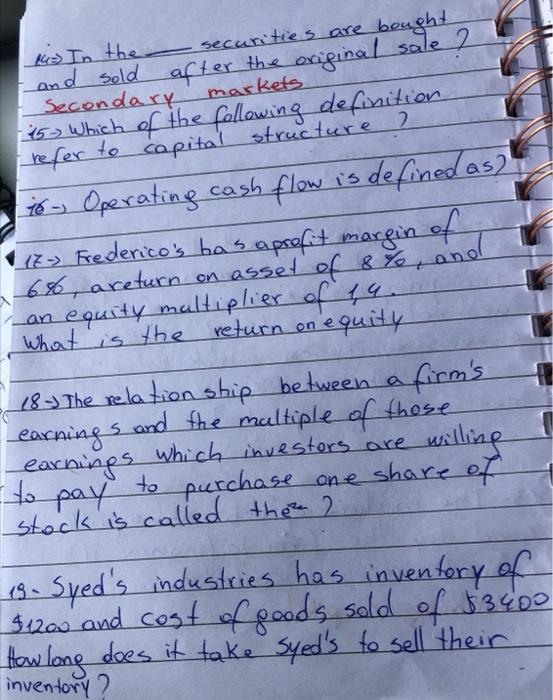 14→ In the ___ securities are bought
and sold after the original sale ?
Secondary markets
15→ Which of the following definition
refer to capital structure ?
16→ Operating cash flow is defined as?
17→ Frederico's has a profit margin of
6%, a return on asset of 8%, and
an equity multiplier of 1,4.
What is the return on equity
18→ The relation ship between a firm's
earnings and the multiple of those
earnings which investors are willing
to pay to purchase one share of
stock is called the ?
19- Syed's industries has inventory of
$1200 and cost of goods sold of $3400
How long does it take Syed's to sell their
inventory ?